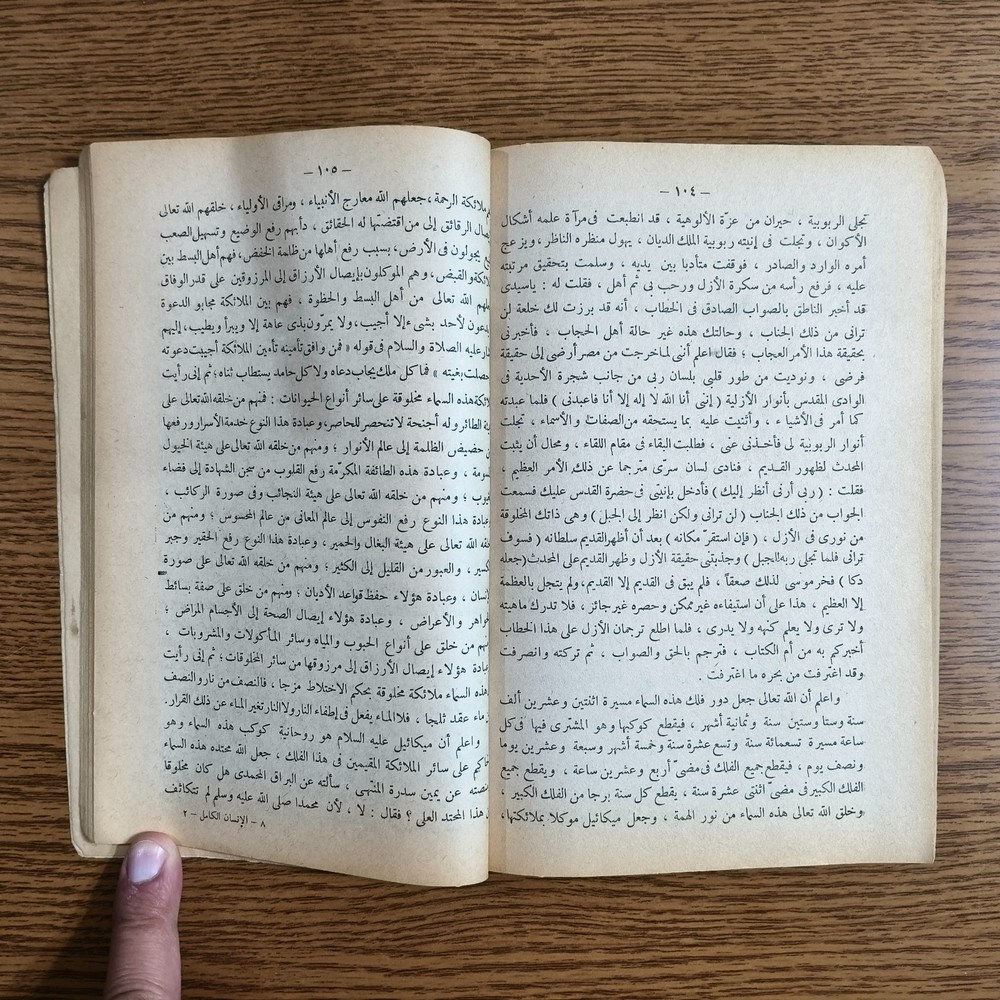 — ١٠٤ —
تجلى الربوبية ، حيران من عزّة الألوهية ، قد انطبعت فى مرآة علمه أشكال
الأكوان ، وتجلت فى إنيته ربوبية الملك الديان ، يهول منظره الناظر ، ويزعج
أمره الوارد والصادر ، فوقفت متأدبا بين يديه ، وسلمت بتحقيق مرتبته
عليه ، فرفع رأسه من سكرة الأزل ورحب بى ثم أهل ، فقلت له : ياسيدى
قد أخبر الناطق بالصواب الصادق فى الخطاب ، أنه قد برزت لك خلعة لن
ترانى من ذلك الجناب ، وحالتك هذه غير حالة أهل الحجاب ، فأخبرنى
بحقيقة هذا الأمر العجاب ؛ فقال اعلم أننى لما خرجت من مصر أرضى إلى حقيقة
فرضى ، ونوديت من طور قلبى بلسان ربى من جانب شجرة الأحدية فى
الوادى المقدس بأنوار الأزلية ( إننى أنا الله لا إله إلا أنا فاعبدنى ) فلما عبدته
كما أمر فى الأشياء ، وأثنيت عليه بما يستحقه من الصفات والأسماء ، تجلت
أنوار الربوبية لى فأخذنى عنى ، فطلبت البقاء فى مقام اللقاء ، ومحال أن يثبت
المحدث لظهور القديم ، فنادى لسان سرّى مترجما عن ذلك الأمر العظيم ،
فقلت : ( ربى أرنى أنظر إليك ) فأدخل بإنيتى فى حضرة القدس عليك فسمعت
الجواب من ذلك الجناب ( لن ترانى ولكن انظر إلى الجبل ) وهى ذاتك المخلوقة
من نورى فى الأزل ، ( فإن استقرّ مكانه ) بعد أن أظهر القديم سلطانه ( فسوف
ترانى فلما تجلى ربه للجبل ) وجذبتنى حقيقة الأزل وظهر القديم على المحدث (جعله
دكا ) فخر موسى لذلك صعقاً ، فلم يبق فى القديم إلا القديم، ولم يتجل بالعظمة
إلا العظيم ، هذا على أن استيفاءه غير ممكن وحصره غير جائز ، فلا تدرك ماهيته
ولا ترى ولا يعلم كنهه ولا يدرى ، فلما اطلع ترجمان الأزل على هذا الخطاب
أخبركم به من أم الكتاب ، فترجم بالحق والصواب ، ثم تركته وانصرفت
وقد اغترفت من بحره ما اغترفت .
واعلم أن الله تعالى جعل دور فلك هذه السماء مسيرة اثنتين وعشرين ألف
سنة وستا وستين سنة وثمانية أشهر ، فيقطع كوكبها وهو المشترى فيها فى كل
ساعة مسيرة تسعمائة سنة وتسع عشرة سنة وخمسة أشهر وسبعة وعشرين يوما
ونصف يوم ، فيقطع جميع الفلك فى مضىّ أربع وعشرين ساعة ، ويقطع جميع
الفلك الكبير فى مضىّ اثنتى عشرة سنة ، يقطع كل سنة برجا من الفلك الكبير ،
وخلق الله تعالى هذه السماء من نور الهمة ، وجعل ميكائيل موكلا بملائكتها،
— ١٠٥ —
ملائكة الرحمة ، جعلهم الله معارج الأنبياء ، ومراقى الأولياء ، خلقهم الله تعالى
الرقائق إلى من اقتضتها له الحقائق ، دأبهم رفع الوضيع وتسهيل الصعب
يجولون فى الأرض، بسبب رفع أهلها من ظلمة الخفض، فهم أهل البسط بين
والقبض ، وهم الموكلون بإيصال الأرزاق إلى المرزوقين على قدر الوفاق
الله تعالى من أهل البسط والحظوة ، فهم بين الملائكة مجابو الدعوة
لأحد بشىء إلا أجيب، ولا يمرّون بذى عاهة إلا ويبرأ ويطيب، إليهم
عليه الصلاة والسلام فى قوله « فمن وافق تأمينه تأمين الملائكة أجيبت دعوته
بغيته » فما كل ملك يجاب دعاه ولا كل حامد يستطاب ثناه؛ ثم إنى رأيت
هذه السماء مخلوقة على سائر أنواع الحيوانات : فمنهم من خلقه الله تعالى على
الطائر وله أجنحة لا تنحصر للحاصر، وعبادة هذا النوع خدمة الأسرار ورفعها
حضيض الظلمة إلى عالم الأنوار ؛ ومنهم من خلقه الله تعالى على هيئة الخيول
، وعبادة هذه الطائفة المكرّمة رفع القلوب من سجن الشهادة إلى فضاء
؛ ومنهم من خلقه الله تعالى على هيئة النجائب وفى صورة الركائب ،
هذا النوع رفع النفوس إلى عالم المعانى من عالم المحسوس ؛ ومنهم من
الله تعالى على هيئة البغال والحمير ، وعبادة هذا النوع رفع الحقير وجبر
، والعبور من القليل إلى الكثير ؛ ومنهم من خلقه الله تعالى على صورة
، وعبادة هؤلاء حفظ قواعد الأديان ؛ ومنهم من خلق على صفة بسائط
والأعراض ، وعبادة هؤلاء إيصال الصحة إلى الأجسام المراض ؛
من خلق على أنواع الحبوب والمياه وسائر المأكولات والمشروبات ،
هؤلاء إيصال الأرزاق إلى مرزوقها من سائر المخلوقات؛ ثم إنى رأيت
هذه السماء ملائكة مخلوقة بحكم الاختلاط مزجا ، فالنصف من نار والنصف
ماء عقد ثلجا ، فلا الماء يفعل فى إطفاء النار ولا النار تغير الماء عن ذلك القرار.
واعلم أن ميكائيل عليه السلام هو روحانية كوكب هذه السماء وهو
على سائر الملائكة المقيمين فى هذا الفلك ، جعل الله محتده هذه السماء
عن يمين سدرة المنتهى ، سألته عن البراق المحمدى هل كان مخلوقا
هذا المحتد العلى ؟ فقال : لا ، لأن محمدا صلى الله عليه وسلم لم تتكاثف
٨ – الإنسان الكامل – ٢